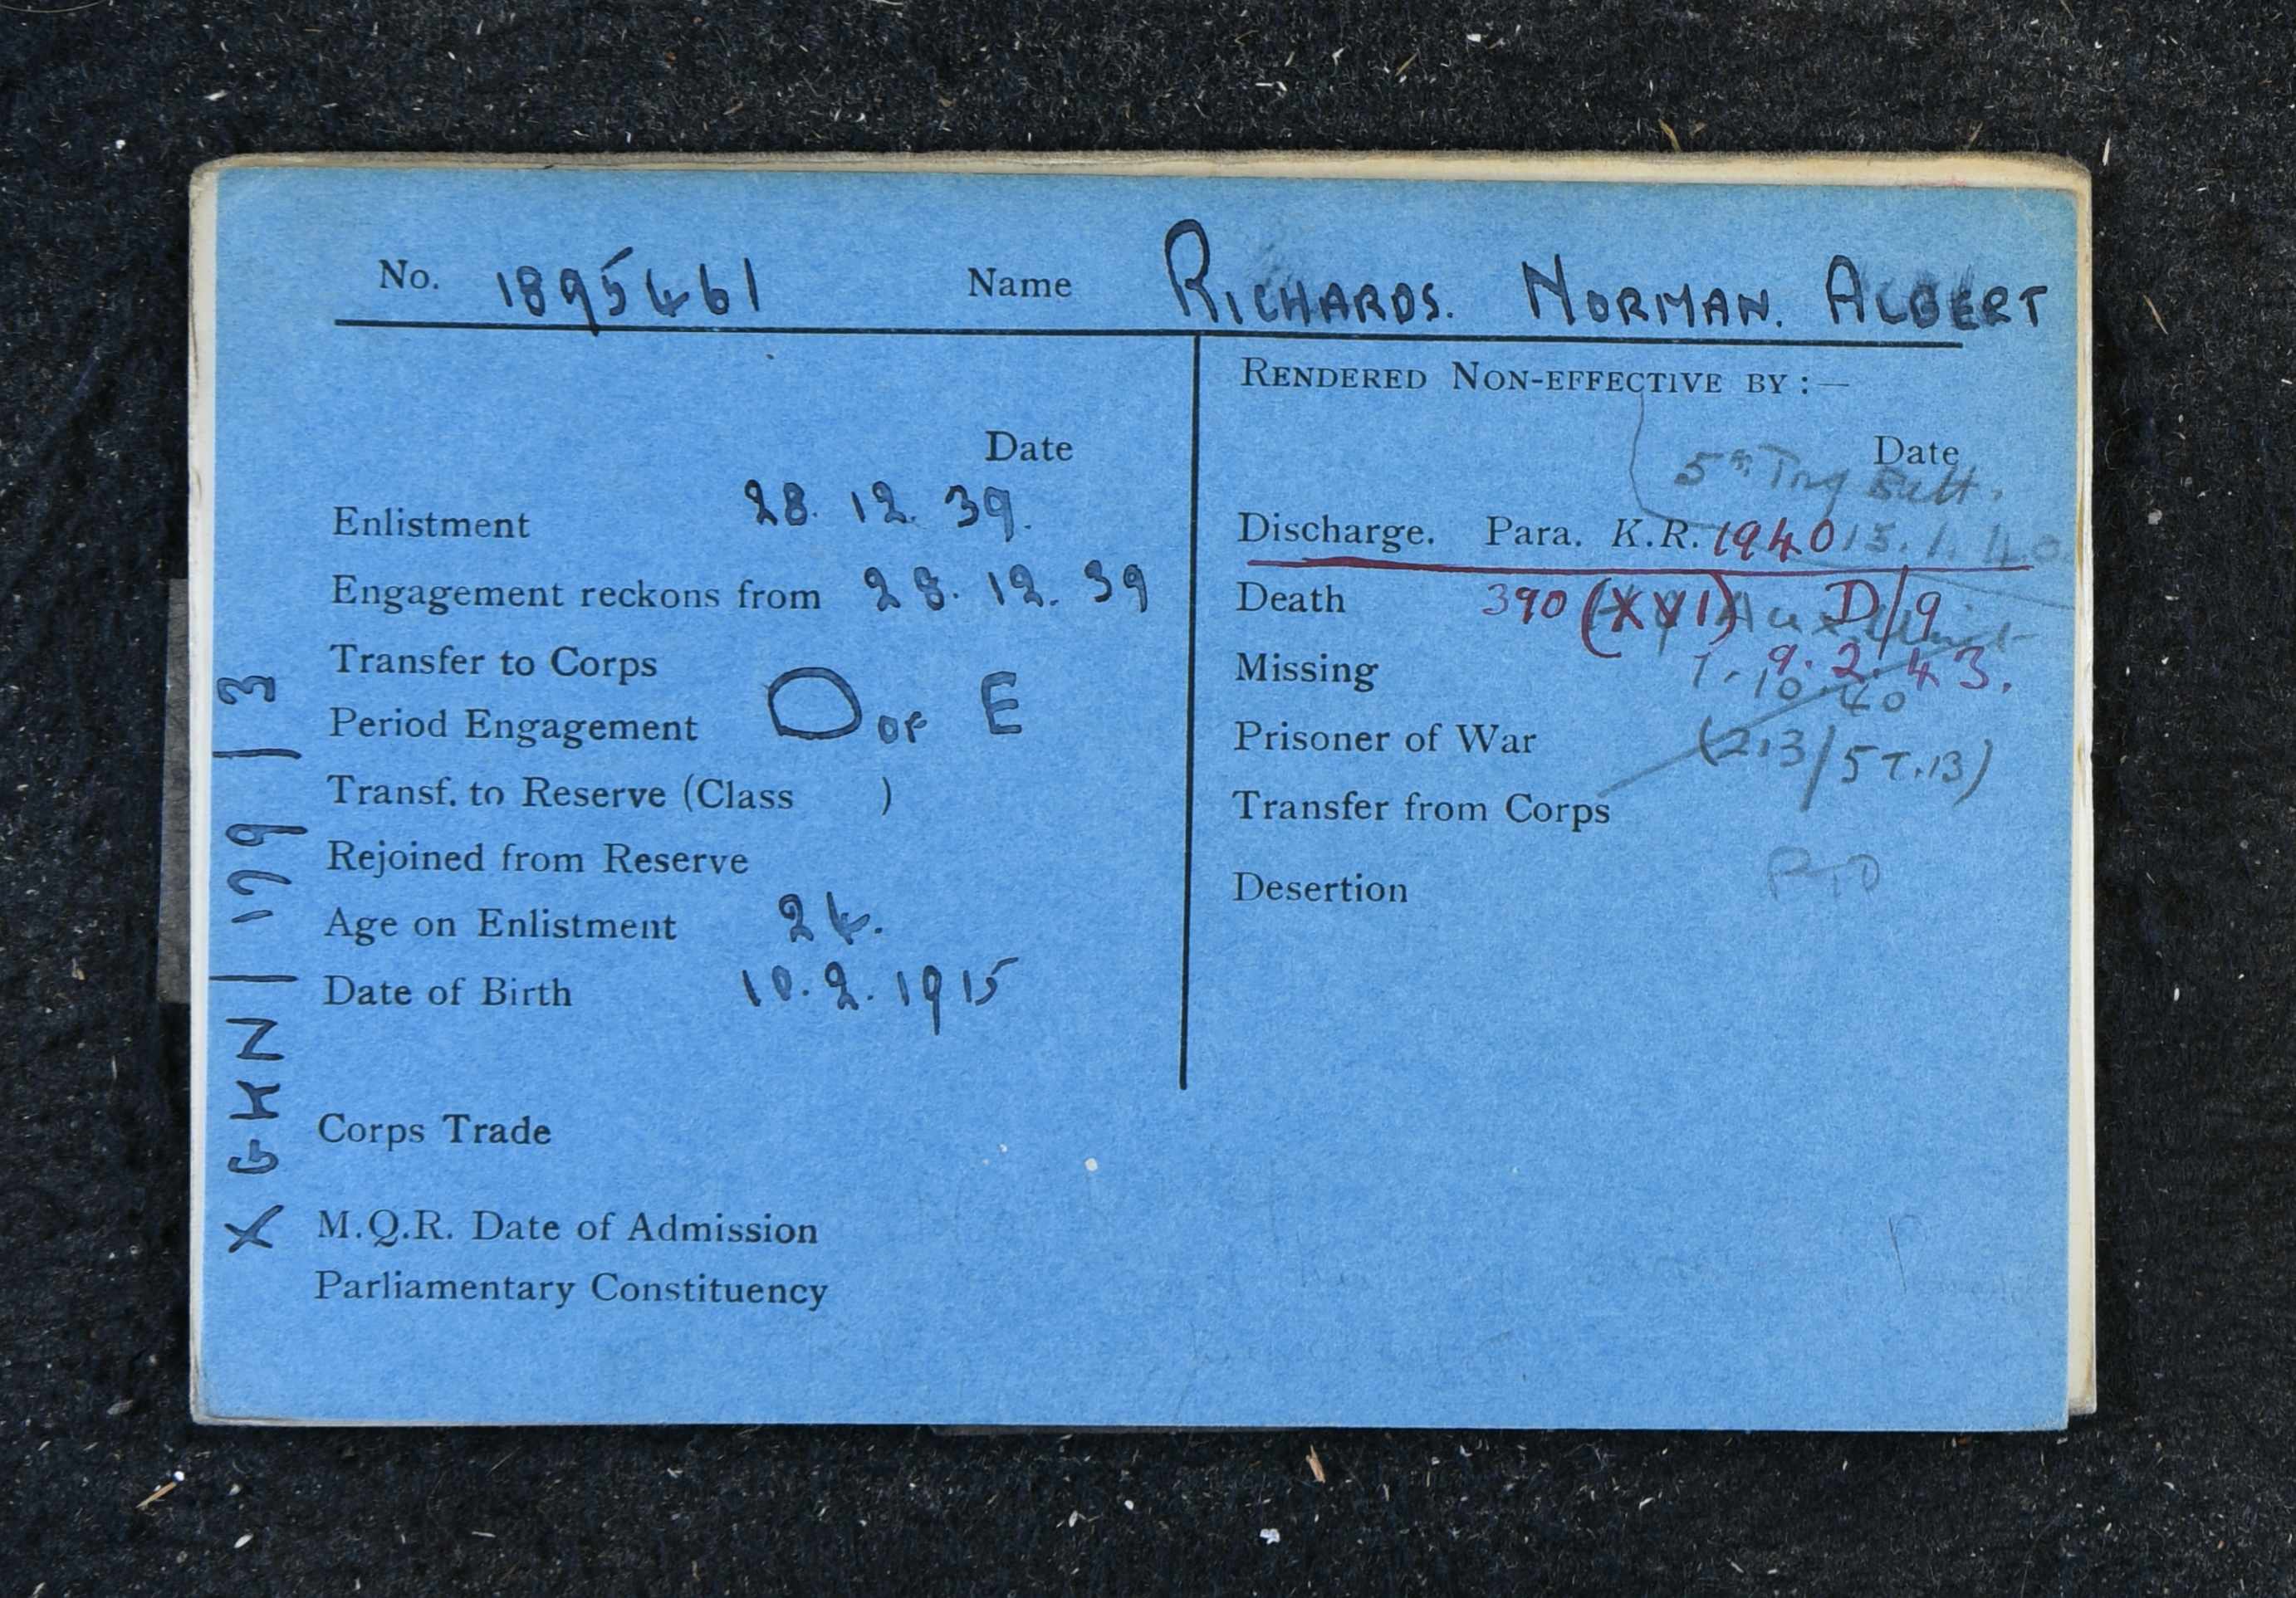 No. 1895461 Name RICHARDS. NORMAN. ALBERT
Date
Enlistment 28. 12. 39.
Engagement reckons from 28. 12. 39
Transfer to Corps
Period Engagement D OF E
Transf. to Reserve (Class )
Rejoined from Reserve
Age on Enlistment 24.
Date of Birth 10. 2. 1915
Corps Trade
M.Q.R. Date of Admission
Parliamentary Constituency
RENDERED NON-EFFECTIVE BY :—
Date
5th Trg Batt.
Discharge. Para. K.R. 1940 15. 1. 40
Death 390 (XVI) D/9
Missing 9. 2. 43.
1. 10 40
Prisoner of War (213/5 T.13)
Transfer from Corps
Desertion
X GKN | 179 | 3